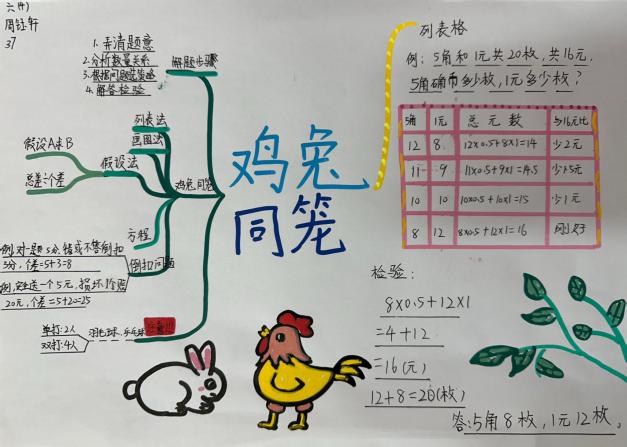 六(4)
周钰轩
37
1.弄清题意
2.分析数量关系
3.根据问题定策略
4.解答检验
解题步骤
列表法
画图法
假设法
假设A求B
总差÷个差
鸡兔同笼
方程
倒扣问题
例,对一题5分,错或不答倒扣
3分,个差=5+3=8
5元,损坏
20元,个差=5+20=25
单打:2人
双打:4人
羽毛球、乒乓球
鸡兔
同笼
列表格
例:5角和1元共20枚,共16元.
5角硬币多少枚,1元多少枚?
5角 1元 总元数 与16元比
12 8 12×0.5+8×1=14 少2元
11 9 11×0.5+9×1=14.5 少1.5元
10 10 10×0.5+10×1=15 少1元
8 12 8×0.5+12×1=16 刚好
检验:
8×0.5+12×1
=4+12
=16(元)
12+8=20(枚)
答:5角8枚,1元12枚。